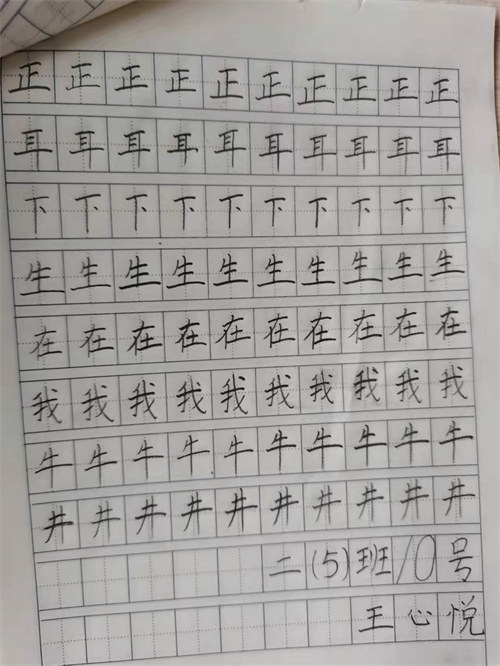 正正正正正正正正正正
耳耳耳耳耳耳耳耳耳耳
下下下下下下下下下下
生生生生生生生生生生
在在在在在在在在在在
我我我我我我我我我我
牛牛牛牛牛牛牛牛牛牛
井井井井井井井井井井
二(5)班10号
王心悦